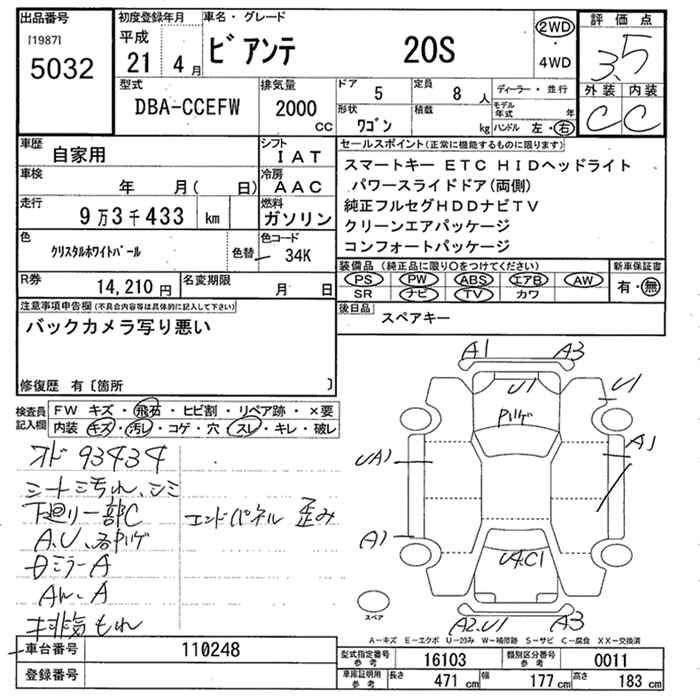 出品番号
[1987]
5032
初度登録年月
平成
21 4月
車名・グレード
ビアンテ 20S
2WD
・
4WD
評価点
3.5
外装 内装
C C
型式
DBA-CCEFW
排気量
2000
cc
ドア 5
定員 8人
形状
ワゴン
積載
kg
ディーラー・並行
モデル年式 年
ハンドル 左・右
車歴
自家用
シフト
IAT
車検
年 月( 日)
冷房
AAC
走行
9万3千433 km
燃料
ガソリン
色
クリスタルホワイトパール
色替
色コード
34K
R券
14,210円
名変期限
月 日
セールスポイント(正常に機能するものに限ります)
スマートキー ETC HIDヘッドライト
パワースライドドア(両側)
純正フルセグHDDナビTV
クリーンエアパッケージ
コンフォートパッケージ
装備品(純正品に限り○をつけてください)
PS PW ABS エアB AW
SR ナビ TV カワ
新車保証書
有・無
後日品
スペアキー
注意事項申告欄(不具合内容等は具体的に記入して下さい)
バックカメラ写り悪い
修復歴 有〔箇所 〕
検査員記入欄
FW キズ・飛石・ヒビ割・リペア跡・×要
内装 キズ・汚レ・コゲ・穴・スレ・キレ・破レ
オド 93434
シート汚れ、シミ
下廻り一部C
エンドパネル 歪み
ミラーA
A
排気もれ
A1 A3
U1
U1
A1
A1
A2.U1 A3
スペア
A－キズ E－エクボ U－凹み W－補修跡 S－サビ C－腐食 XX－交換済
車台番号
110248
登録番号
型式指定番号
参考
16103
類別区分番号
参考
0011
車庫証明用
参考
長さ 471 cm
幅 177 cm
高さ 183 cm